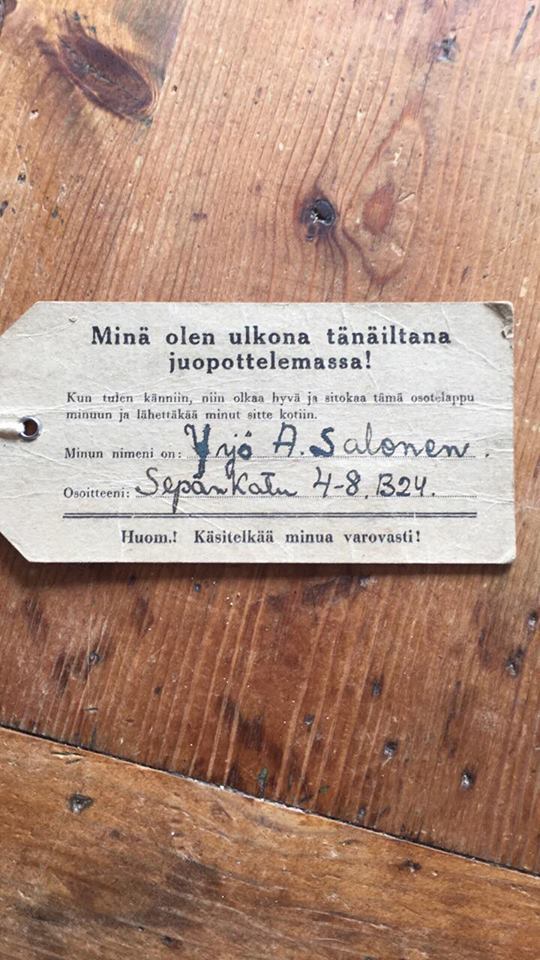 Minä olen ulkona tänäiltana
juopottelemassa!
Kun tulen känniin, niin olkaa hyvä ja sitokaa tämä osotelappu
minuun ja lähettäkää minut sitte kotiin.
Minun nimeni on: Yrjö A. Salonen.
Osoitteeni: Sepänkatu 4-8. B24.
Huom.! Käsitelkää minua varovasti!